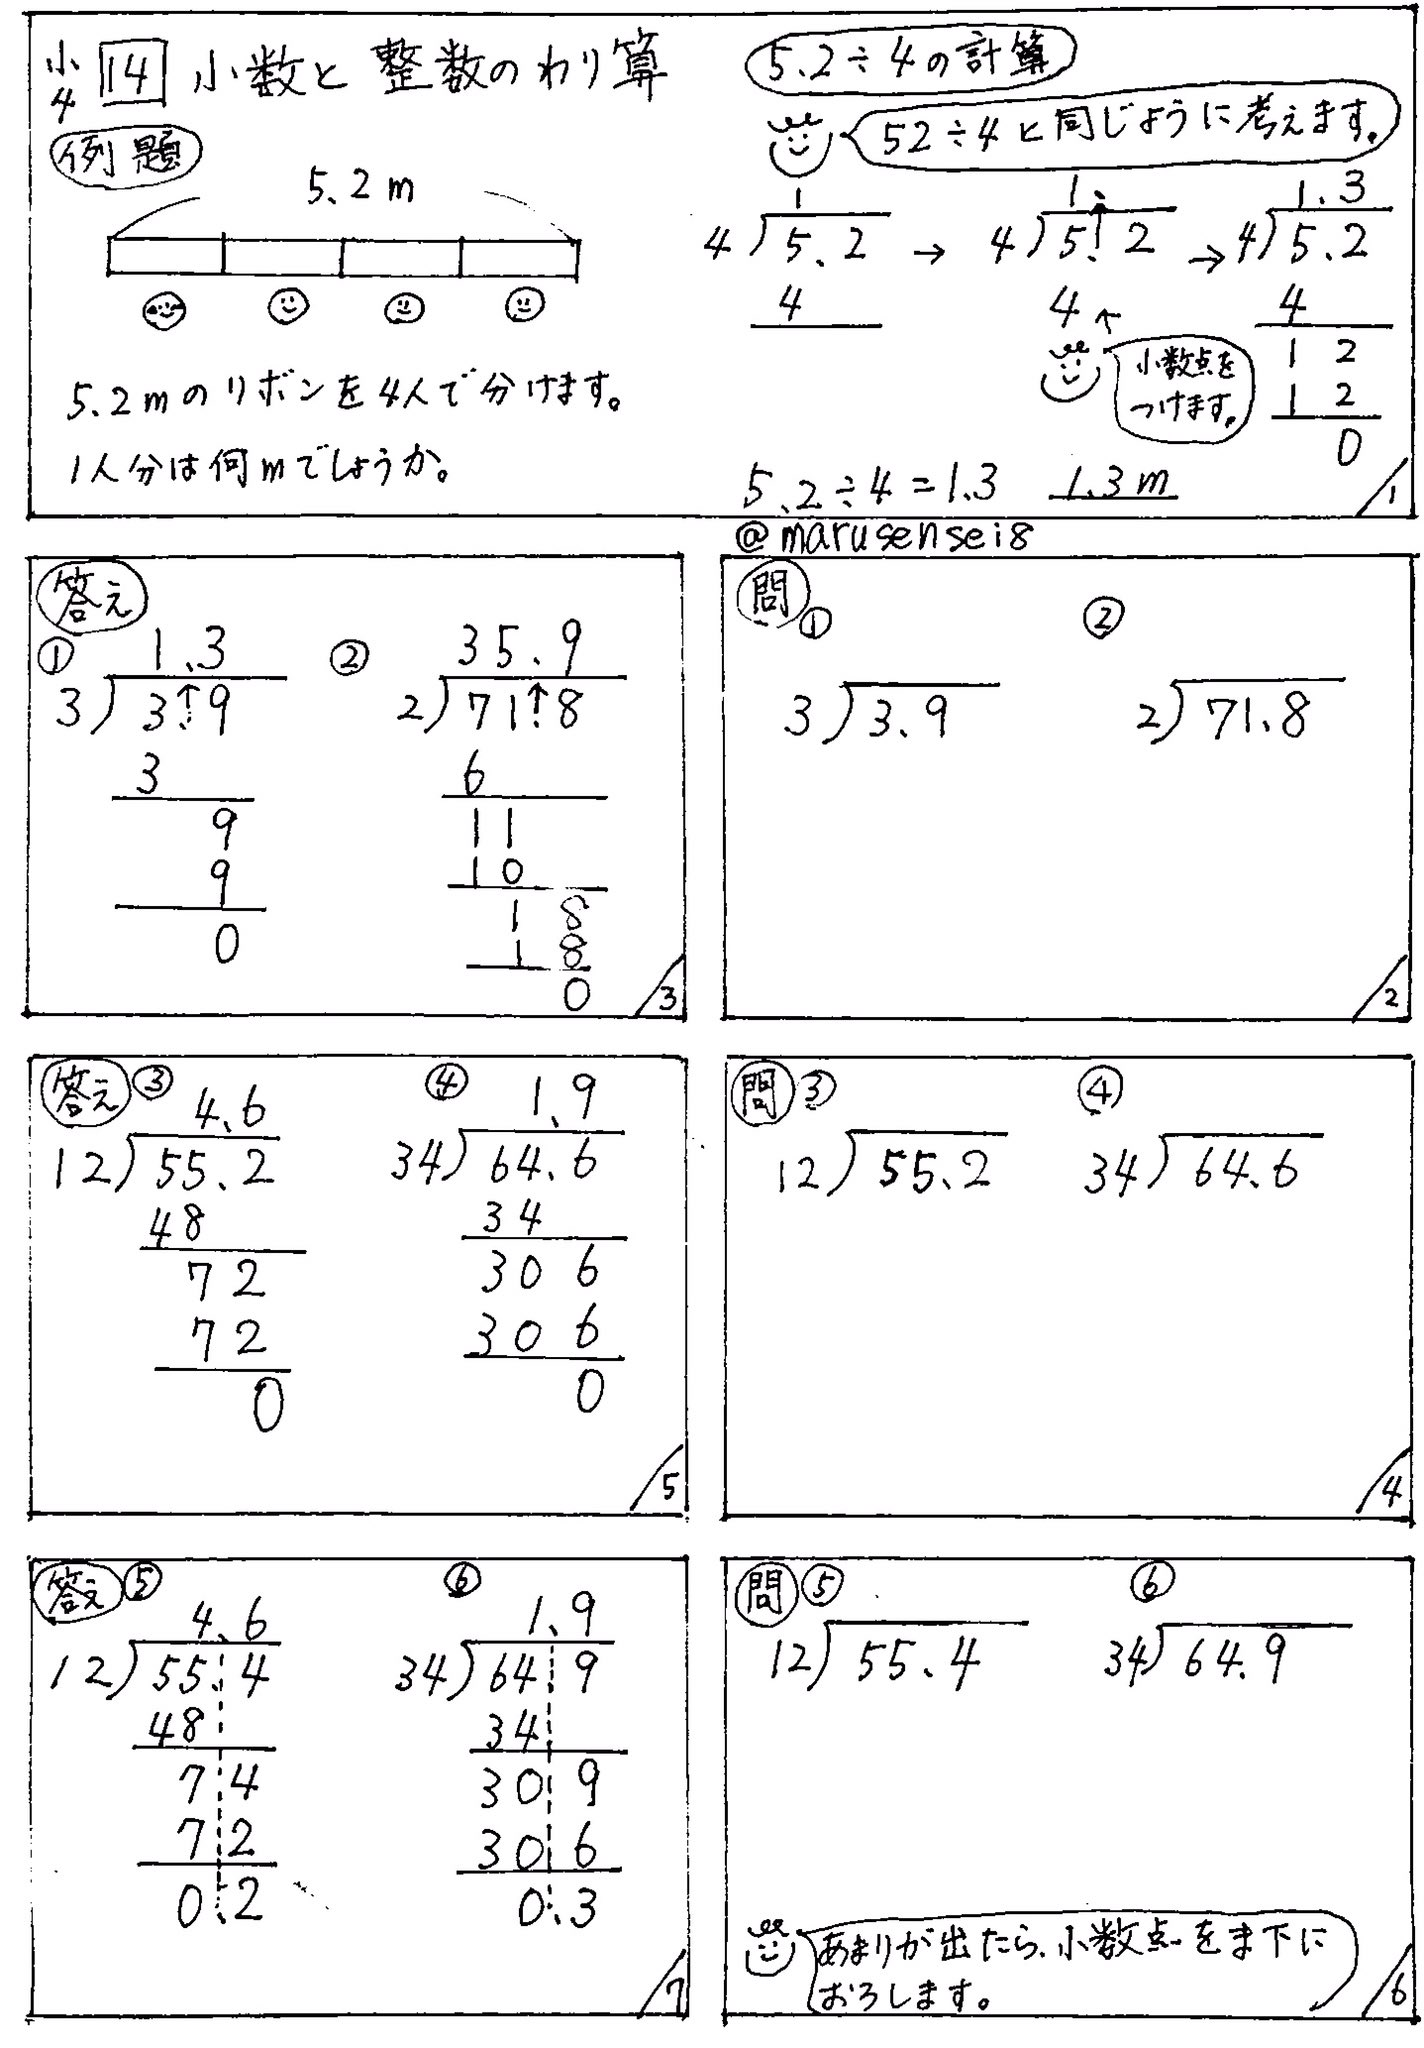 小4 14 小数と整数のわり算
例題
5.2m
5.2mのリボンを4人で分けます。
1人分は何mでしょうか。
5.2÷4の計算
52÷4と同じように考えます。
1
4)5.2
4
→
1.
4)5.2
4
小数点を
つけます。
→
1.3
4)5.2
4
12
12
0
5.2÷4=1.3 1.3m
1
@marusensei8
問
① 3)3.9
② 2)71.8
2
答え
①
1.3
3)3.9
3
9
9
0
②
35.9
2)71.8
6
11
10
18
18
0
3
問
③ 12)55.2
④ 34)64.6
4
答え
③
4.6
12)55.2
48
72
72
0
④
1.9
34)64.6
34
306
306
0
5
問
⑤ 12)55.4
⑥ 34)64.9
あまりが出たら、小数点をま下に
おろします。
6
答え
⑤
4.6
12)55.4
48
74
72
0.2
⑥
1.9
34)64.9
34
309
306
0.3
7